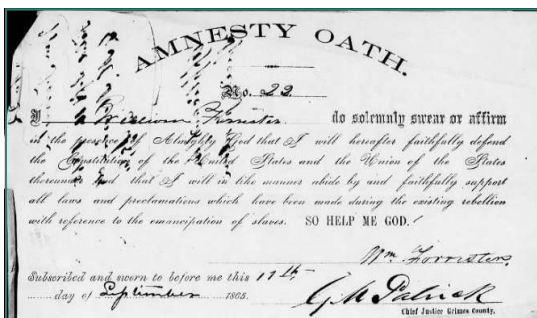 AMNESTY OATH.
No. 22
I William Forrister do solemnly swear or affirm
in the presence of Almighty God that I will hereafter faithfully defend
the Constitution of the United States and the Union of the States
thereunder and that I will in like manner abide by and faithfully support
all laws and proclamations which have been made during the existing rebellion
with reference to the emancipation of slaves. SO HELP ME GOD.
Wm Forristers
Subscribed and sworn to before me this 11th
day of September 1865.
G M Patrick
Chief Justice Grimes County.